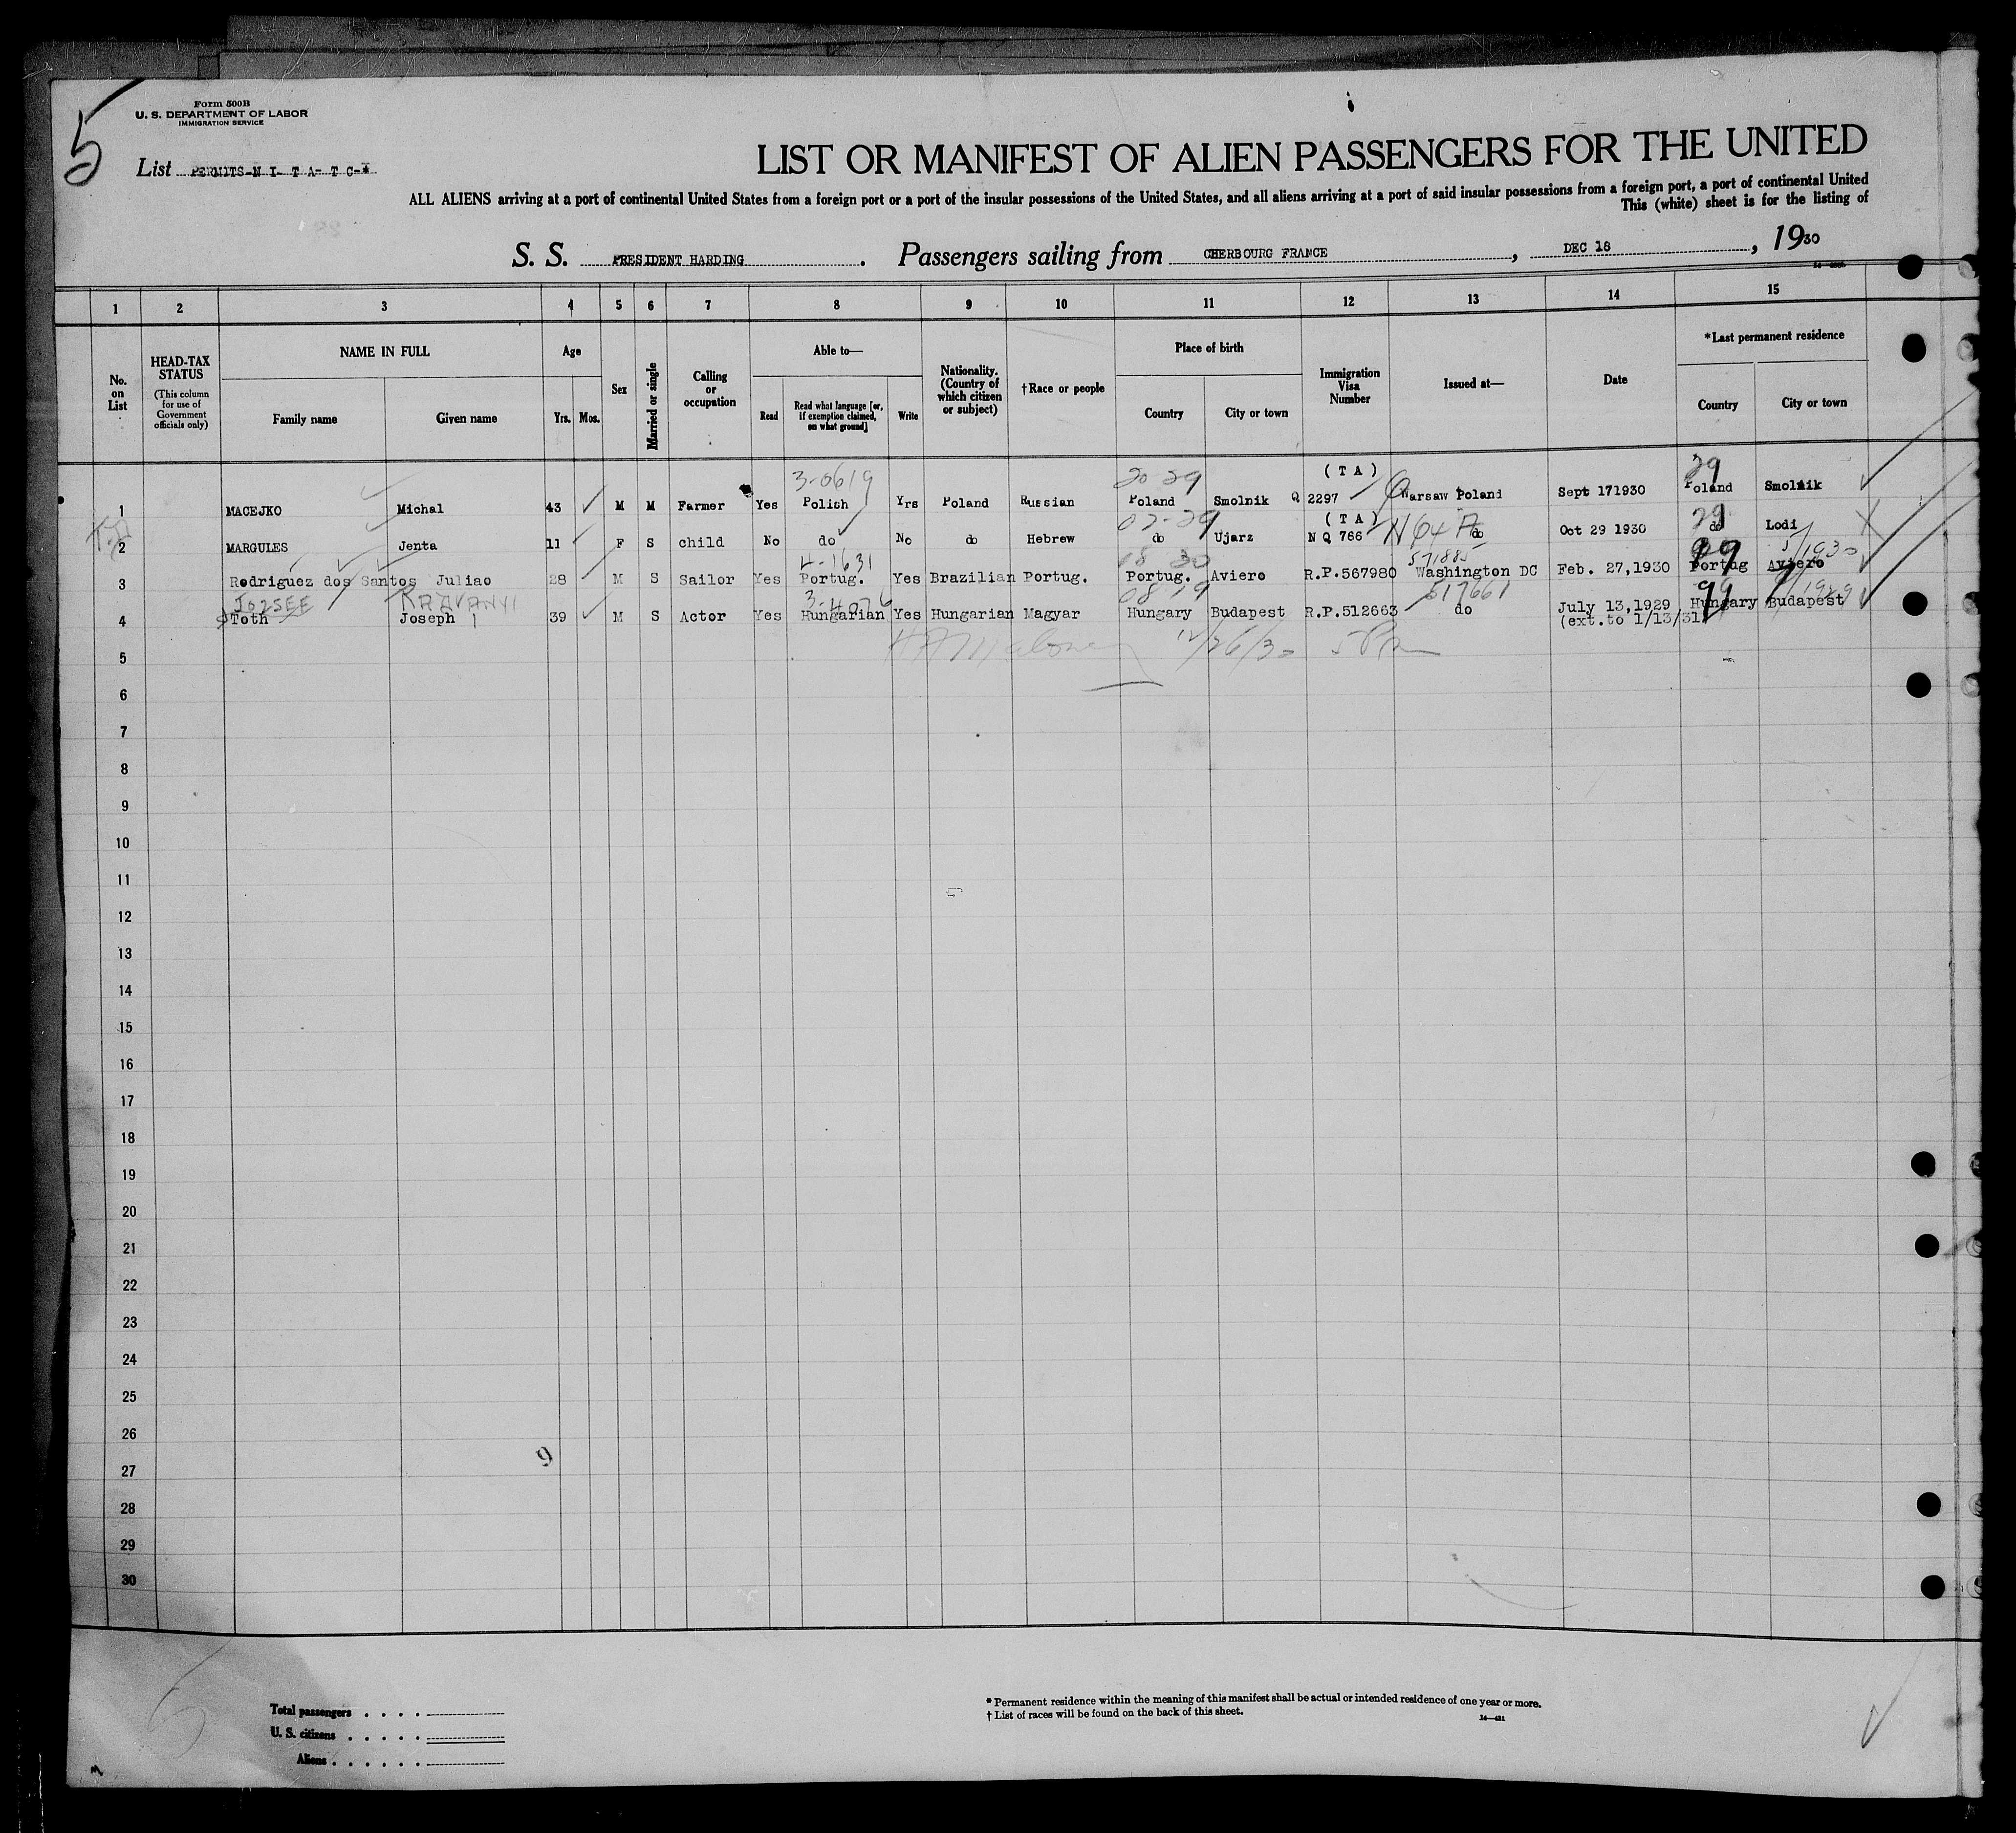 5
Form 500B
U. S. DEPARTMENT OF LABOR
IMMIGRATION SERVICE
List PERMITS-N I- T A- T C-*
LIST OR MANIFEST OF ALIEN PASSENGERS FOR THE UNITED
ALL ALIENS arriving at a port of continental United States from a foreign port or a port of the insular possessions of the United States, and all aliens arriving at a port of said insular possessions from a foreign port, a port of continental United
This (white) sheet is for the listing of
S. S. PRESIDENT HARDING. Passengers sailing from CHERBOURG FRANCE, DEC 18, 1930
1 2 3 4 5 6 7 8 9 10 11 12 13 14 15
No. on List
HEAD-TAX STATUS (This column for use of Government officials only)
NAME IN FULL Family name Given name
Age Yrs. Mos.
Sex
Married or single
Calling or occupation
Able to— Read Read what language [or, if exemption claimed, on what ground] Write
Nationality. (Country of which citizen or subject)
†Race or people
Place of birth Country City or town
Immigration Visa Number
Issued at—
Date
*Last permanent residence Country City or town
3-0619 20-29 (TA) 29
1 MACEJKO Michal 43 M M Farmer Yes Polish Yrs Poland Russian Poland Smolnik Q 2297 Warsaw Poland Sept 171930 Poland Smolnik
(TA) 29
2 MARGULES Jenta 11 F S child No do No do Hebrew do Ujarz N Q 766 do Oct 29 1930 do Lodi
4-1631 18 30 571885 5/1930
3 Rodriguez dos Santos Juliao 28 M S Sailor Yes Portug. Yes Brazilian Portug. Portug. Aviero R.P.567980 Washington DC Feb. 27,1930 Portug Aviero
JOZSEF 3-4076 08-29 517661 1929
4 Toth Joseph 39 M S Actor Yes Hungarian Yes Hungarian Magyar Hungary Budapest R.P.512663 do July 13,1929 Hungary Budapest
(ext.to 1/13/31
12/26/30
5
6
7
8
9
10
11
12
13
14
15
16
17
18
19
20
21
22
23
24
25
26
27
28
29
30
9
Total passengers . . . .
U. S. citizens . . . . .
Aliens . . . . . .
* Permanent residence within the meaning of this manifest shall be actual or intended residence of one year or more.
† List of races will be found on the back of this sheet.